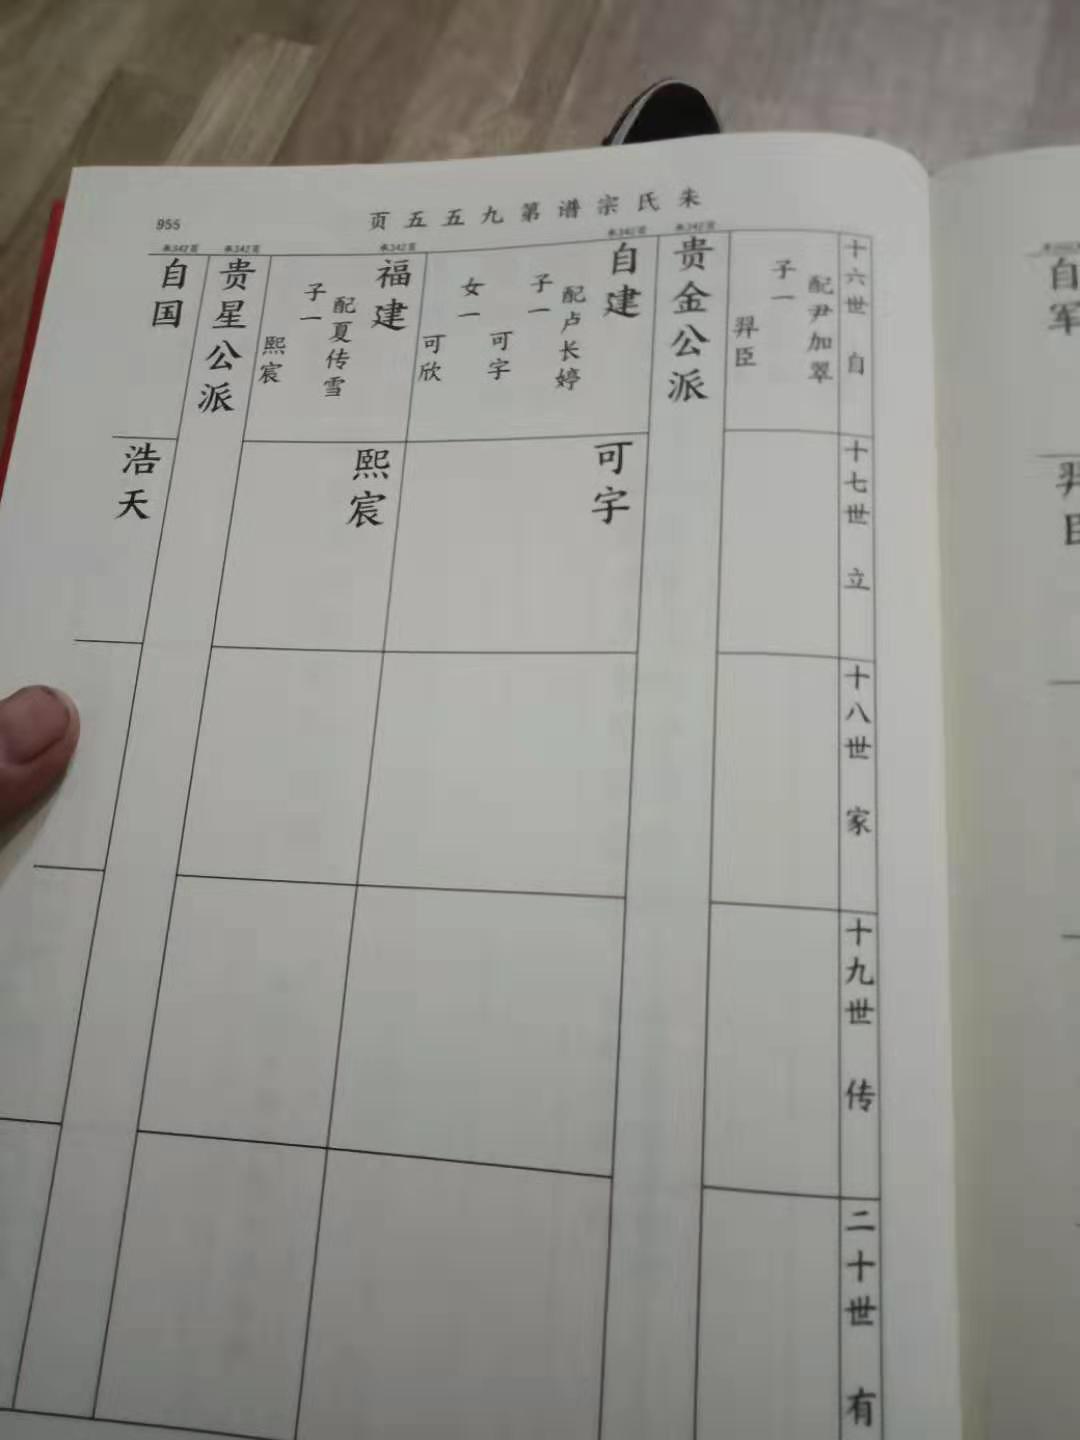 朱氏宗谱第九五五页
955
十六世 自
十七世 立
十八世 家
十九世 传
二十世 有
配尹加翠
子一
羿臣
贵金公派
承342页
自建
承342页
配卢长婷
子一
可字
女一
可欣
可宇
福建
承342页
配夏传雪
子一
熙宸
熙宸
贵星公派
承342页
自国
承342页
浩天
自军
羿